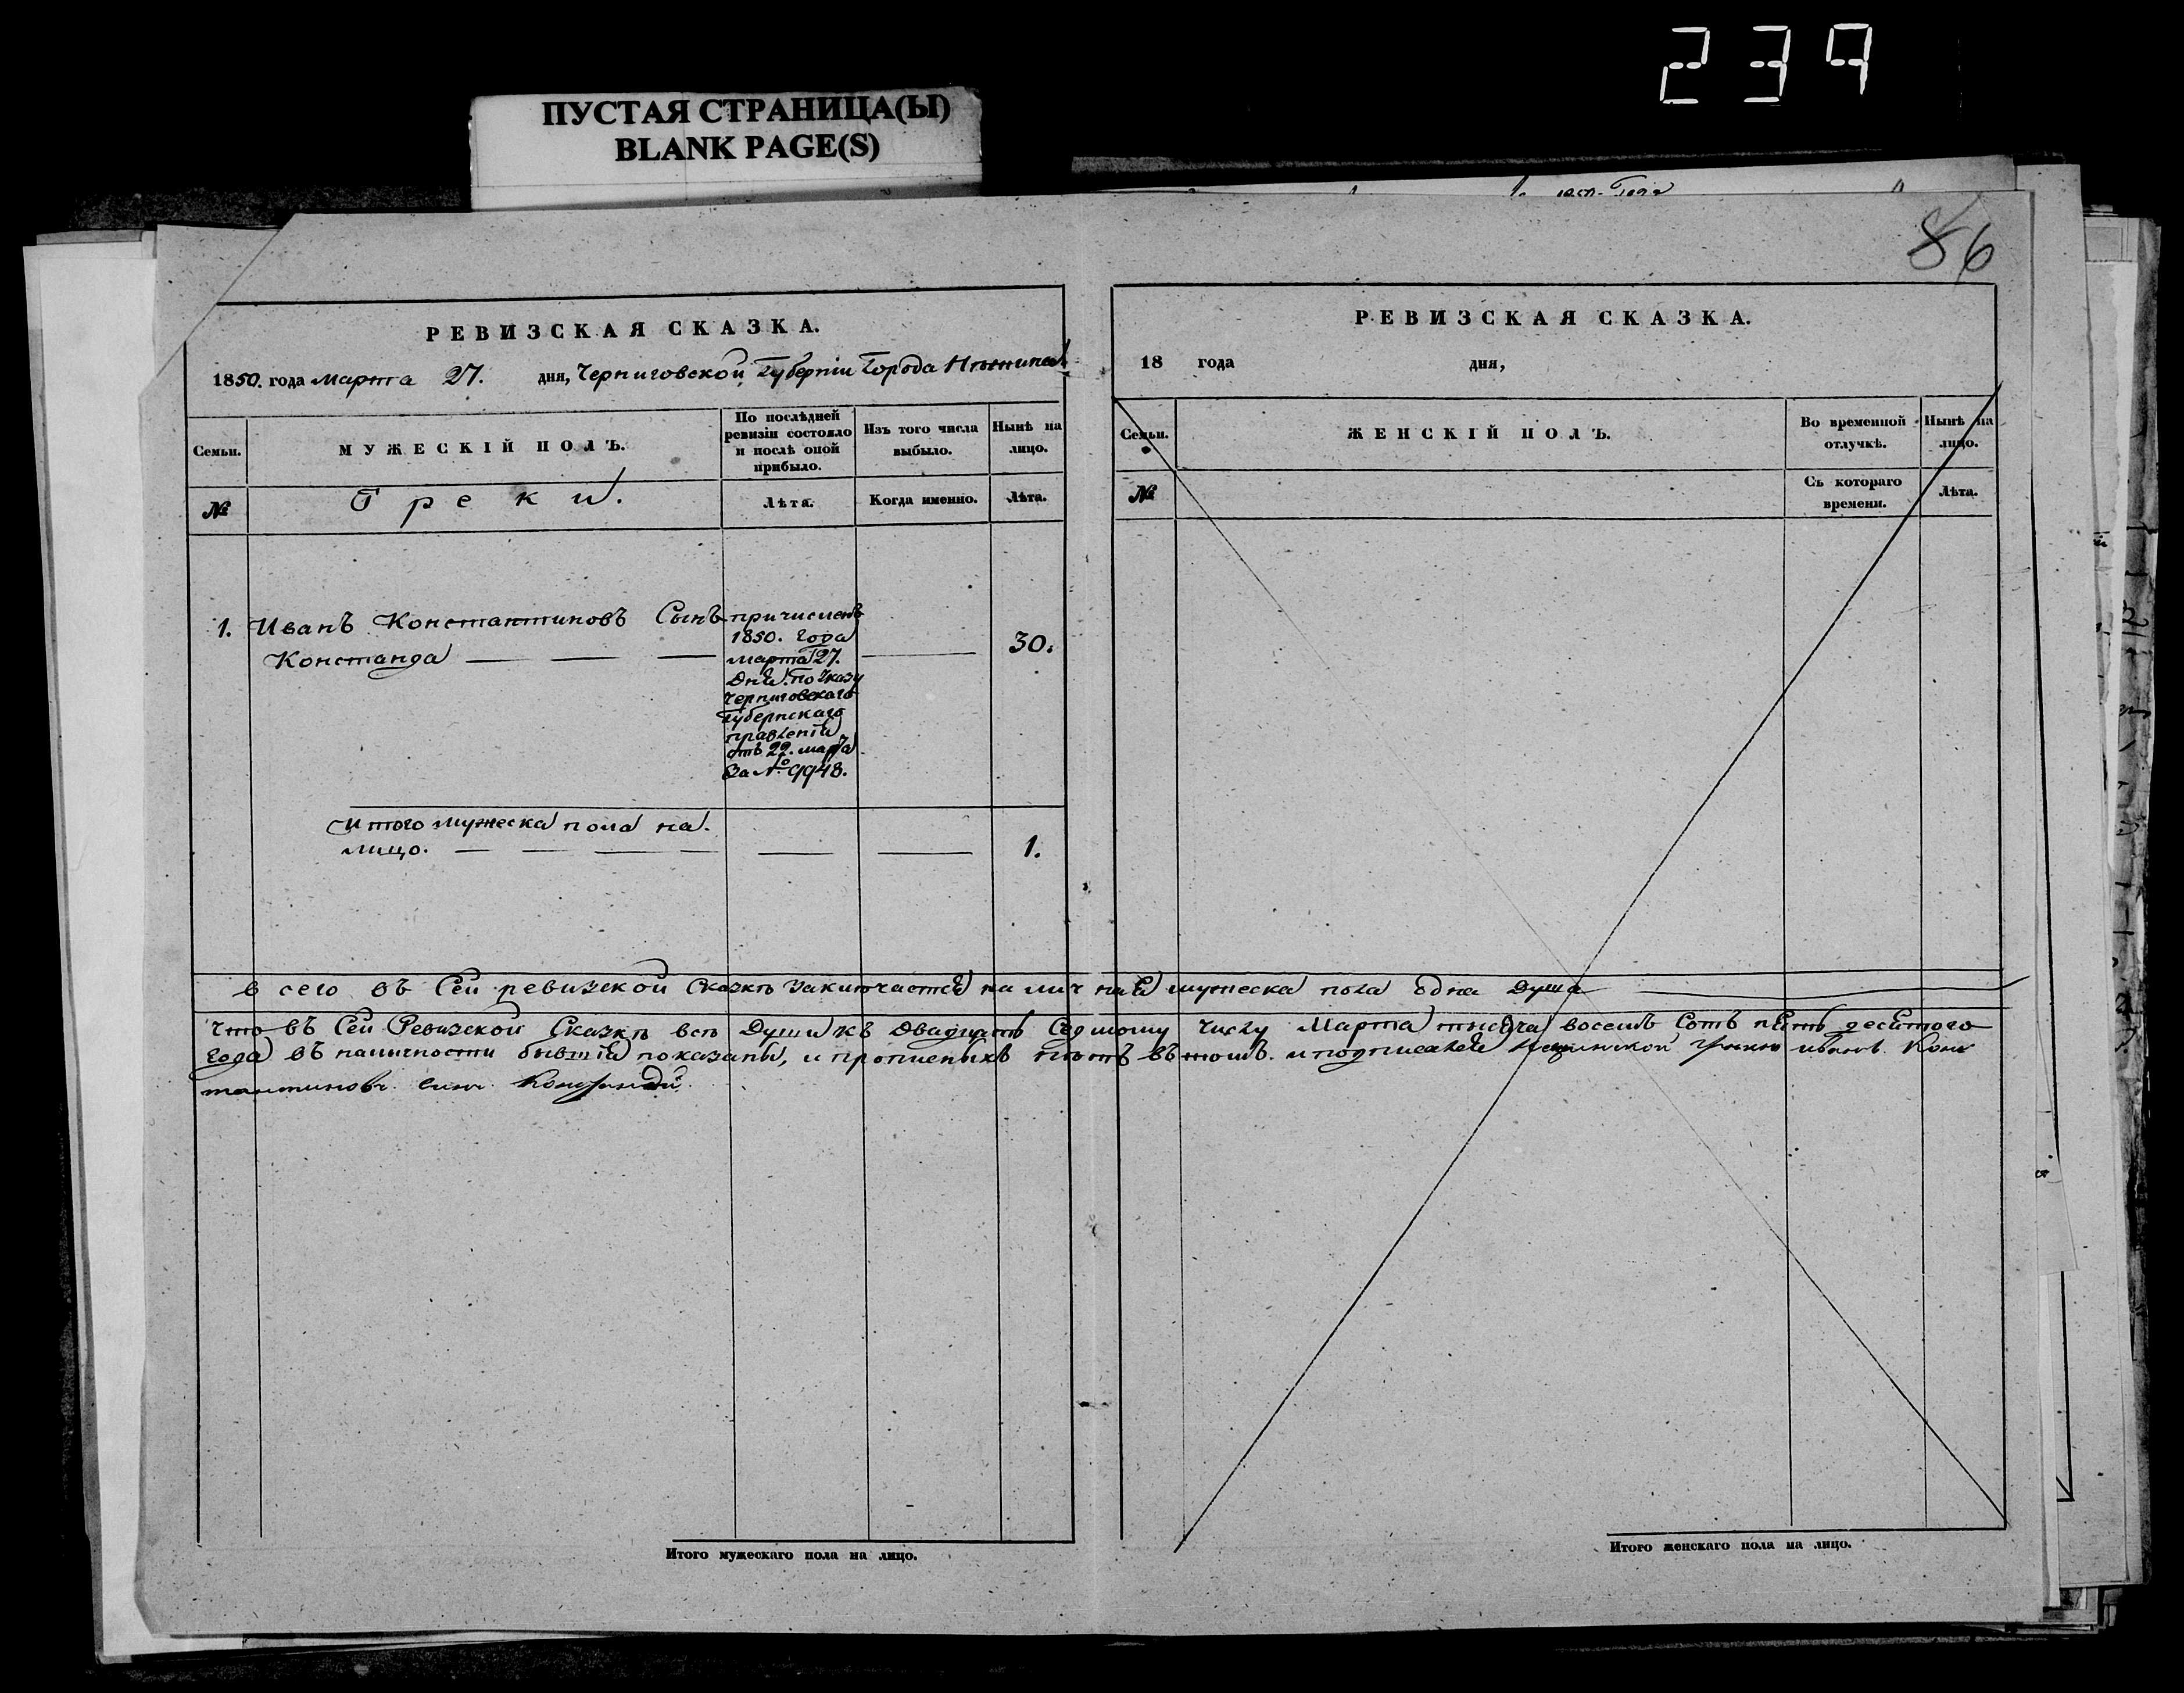 239
ПУСТАЯ СТРАНИЦА(Ы)
BLANK PAGE(S)
86
РЕВИЗСКАЯ СКАЗКА.
1850. года марта 27. дня, Черниговской Губерніи Города Нѣжина
Семьи.
МУЖЕСКІЙ ПОЛЪ.
По послѣдней
ревизіи состояло
и послѣ оной
прибыло.
Изъ того числа
выбыло.
Нынѣ на
лицо.
№
Греки.
Лѣта.
Когда именно.
Лѣта.
1. Иванъ Константиновъ Сынъ
Констанда
причисленъ
1850. года
марта 27.
дня. По Указу
Черниговскаго
Губернскаго
правленія
отъ 22. марта
За № 9948.
30.
Итого мужеска пола на
лицо.
1.
РЕВИЗСКАЯ СКАЗКА.
18 года дня,
Семьи.
ЖЕНСКІЙ ПОЛЪ.
Во временной
отлучкѣ.
Нынѣ на
лицо.
№
Съ котораго
времени.
Лѣта.
всего въ Сей ревизской Сказкѣ заключается на лич ная мужеска пола одна Душа
Что въ Сей Ревизской Сказкѣ всѣ Души къ двадцать Седмому числу Марта тысяча восемъ Сотъ пять десятого
года въ наличности бывшія показаны, и прописныхъ нѣтъ въ томъ. и подписался Нежинской грекъ иванъ Конс
тантиновъ синъ Констанди
Итого мужескаго пола на лицо.
Итого женскаго пола на лицо.